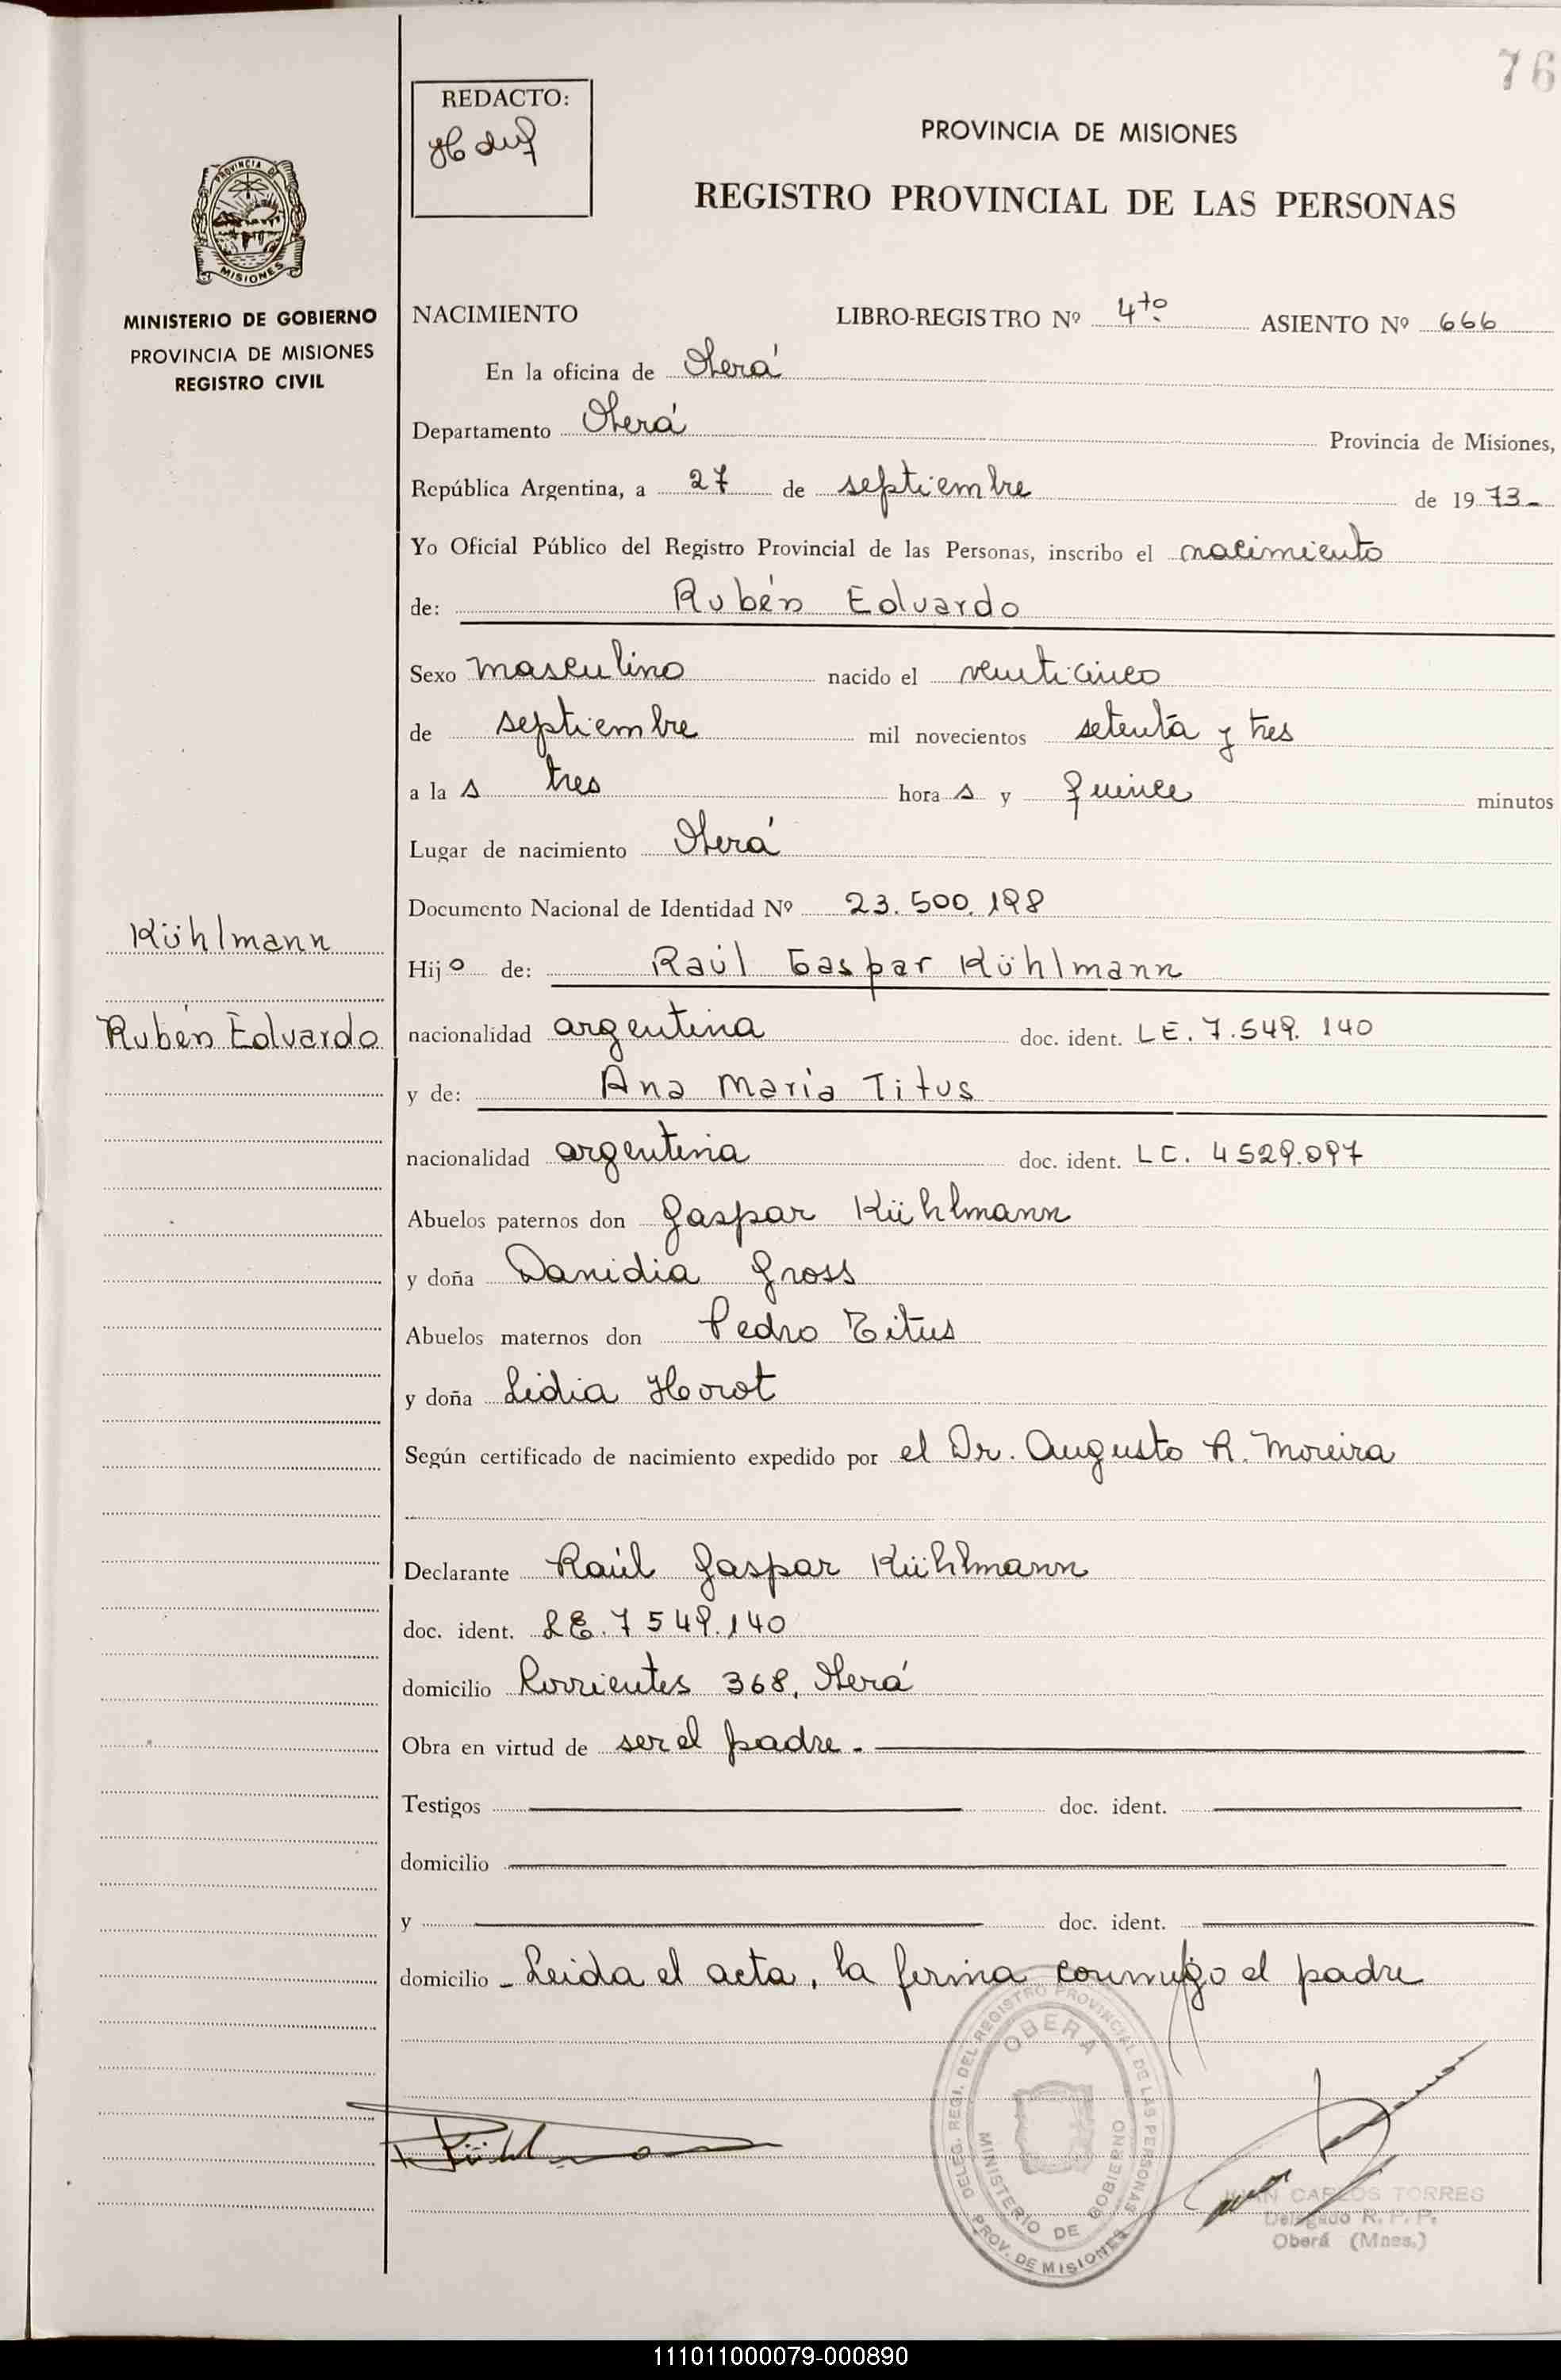 76
REDACTO:
PROVINCIA DE MISIONES
REGISTRO PROVINCIAL DE LAS PERSONAS
PROVINCIA DE
MISIONES
MINISTERIO DE GOBIERNO
PROVINCIA DE MISIONES
REGISTRO CIVIL
NACIMIENTO LIBRO-REGISTRO Nº 4to. ASIENTO Nº 666
En la oficina de Oberá
Departamento Oberá Provincia de Misiones,
República Argentina, a 27 de septiembre de 1973-
Yo Oficial Público del Registro Provincial de las Personas, inscribo el nacimiento
de: Rubén Eduardo
Sexo masculino nacido el veinticinco
de septiembre mil novecientos setenta y tres
a las tres horas y quince minutos
Lugar de nacimiento Oberá
Documento Nacional de Identidad Nº 23.500.198
Kühlmann
Hijo de: Raúl Gaspar Kühlmann
Rubén Eduardo
nacionalidad argentina doc. ident. LE. 7.549.140
y de: Ana María Titus
nacionalidad argentina doc. ident. LC. 4529.097
Abuelos paternos don Gaspar Kühlmann
y doña Danidia Gross
Abuelos maternos don Pedro Titus
y doña Lidia Horot
Según certificado de nacimiento expedido por el Dr. Augusto R. Moreira
Declarante Raúl Gaspar Kühlmann
doc. ident. LE. 7549.140
domicilio Corrientes 368, Oberá
Obra en virtud de ser el padre.
Testigos doc. ident.
domicilio
y doc. ident.
domicilio - Leida el acta, la firma conmigo el padre
DELEG. REGI. DEL REGISTRO PROVINCIAL DE LAS PERSONAS
OBERA
MINISTERIO DE GOBIERNO
PROV. DE MISIONES
JUAN CARLOS TORRES
Delegado R. P. P.
Oberá (Mnes.)
111011000079-000890